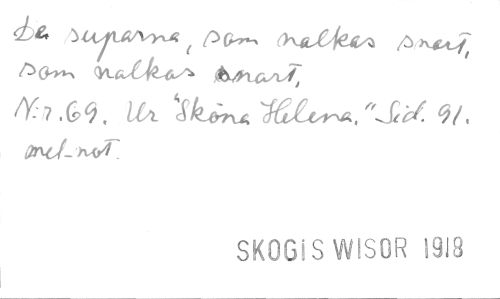 De suparna, som nalkas snart,
som nalkas snart,
N:r. 69. Ur "Sköna Helena." Sid. 91.
mel-not.
SKOGIS WISOR 1918